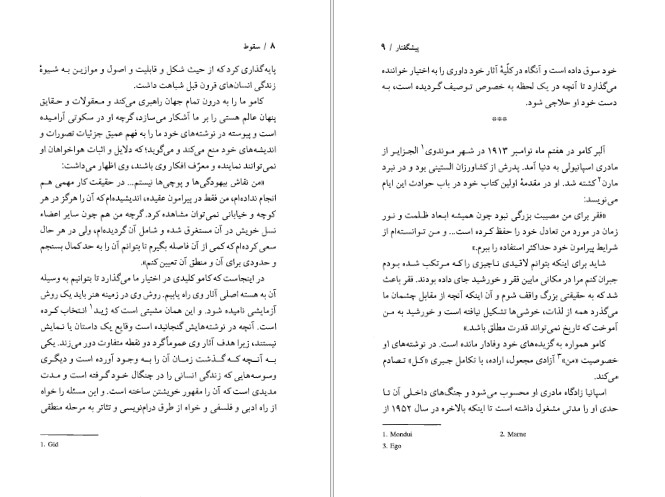 ۸ / سقوط
پایه‌گذاری کرد که از حیث شکل و قابلیت و اصول و موازین به شیوهٔ
زندگی انسان‌های قرون قبل شباهت داشت.
کامو ما را به درون تمام جهان راهبری می‌کند و معقولات و حقایق
پنهان عالم هستی را بر ما آشکار می‌سازد، گرچه او در سکوتی آرامیده
است و پیوسته در نوشته‌های خود ما را به فهم عمیق جزئیات تصورات و
اندیشه‌های خود منع می‌کند و می‌گوید؛ که دلایل و اثبات هواخواهان او
نمی‌توانند نماینده و معرّف افکار وی باشند، وی اظهار می‌داشت:
«من نقاش بیهودگی‌ها و پوچی‌ها نیستم... در حقیقت کار مهمی هم
انجام نداده‌ام، من فقط در پیرامون عقیده، اندیشیده‌ام که آن را هرگز در هر
کوچه و خیابانی نمی‌توان مشاهده کرد. گرچه من هم چون سایر اعضاء
نسل خویش در آن مستغرق شده و شامل آن گردیده‌ام، ولی در هر حال
سعی کرده‌ام که کمی از آن فاصله بگیرم تا بتوانم آن را به حد کمال بسنجم
و حدودی برای آن و منطق آن تعیین کنم».
در اینجاست که کامو کلیدی در اختیار ما می‌گذارد تا بتوانیم به وسیله
آن به هسته اصلی آثار وی راه یابیم. روش وی در زمینه هنر باید یک روش
آزمایشی نامیده شود. و این همان مشیتی است که ژید۱ انتخاب کرده
است. آنچه در نوشته‌هایش گنجانیده است وقایع یک داستان یا نمایش
نیستند، زیرا هدف آثار وی عموماً گرد دو نقطه متفاوت دور می‌زند. یکی
به آنچه که گذشت زمان آن را به وجود آورده است و دیگری
وسوسه‌هایی که زندگی انسانی را در چنگال خود گرفته است و مدت
مدیدی است که آن را مقهور خویشتن ساخته است. و این مسئله را خواه
از راه ادبی و فلسفی و خواه از طرق درام‌نویسی و تئاتر به مرحله منطقی
1. Gid
پیشگفتار / ۹
خود سوق داده است و آنگاه در کلّیهٔ آثار خود داوری را به اختیار خواننده
می‌گذارد تا آنچه در یک لحظه به خصوص توصیف گردیده است، به
دست خود او حلاجی شود.
***
آلبر کامو در هفتم ماه نوامبر ۱۹۱۳ در شهر موندوی۱ الجزایر از
مادری اسپانیولی به دنیا آمد. پدرش از کشاورزان الستینی بود و در نبرد
مارن۲ کشته شد. او در مقدمهٔ اولین کتاب خود در باب حوادث این ایام
می‌نویسد:
«فقر برای من مصیبت بزرگی نبود چون همیشه ابعاد ظلمت و نور
زمان در مورد من تعادل خود را حفظ کرده است... و من توانسته‌ام از
شرایط پیرامون خود حداکثر استفاده را ببرم.»
شاید برای اینکه بتوانم لاقیدی ناچیزی را که مرتکب شده بودم
جبران کنم مرا در مکانی مابین فقر و خورشید جای داده بودند. فقر باعث
شد که به حقیقتی بزرگ واقف شوم و آن اینکه آنچه از مقابل چشمان ما
می‌گذرد همه از لذات، خوشی‌ها تشکیل نیافته است و خورشید به من
آموخت که تاریخ نمی‌تواند قدرت مطلق باشد.»
کامو همواره به گزیده‌های خود وفادار مانده است. در نوشته‌های او
خصوصیت «من»۳ آزادی مجعول، اراده، با تکامل جبری «کل» تصادم
می‌کند.
اسپانیا زادگاه مادری او محسوب می‌شود و جنگ‌های داخلی آن تا
حدی او را مدتی مشغول داشته است تا اینکه بالاخره در سال ۱۹۵۲ از
1. Mondui 2. Marne
3. Ego